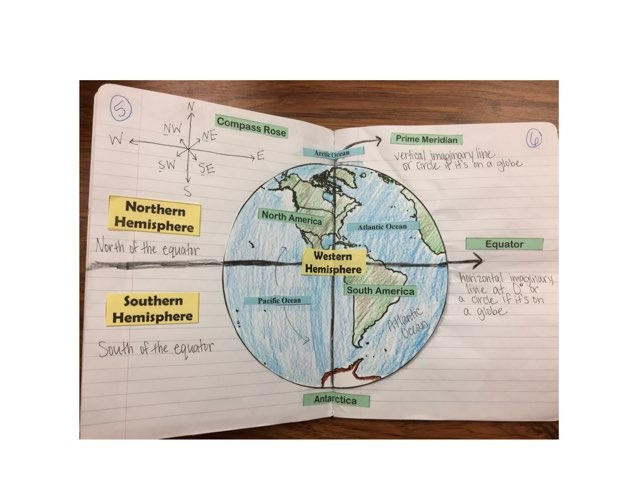 5
N
NW
NE
W
E
SW
SE
S
Compass Rose
Northern
Hemisphere
North of the equator
Southern
Hemisphere
South of the equator
Arctic Ocean
North America
Atlantic Ocean
Western
Hemisphere
Pacific Ocean
South America
Atlantic
Ocean
Antarctica
6
Prime Meridian
vertical imaginary line
or circle if it's on a globe
Equator
horizontal imaginary
line at 0° or
a circle if it's on
a globe